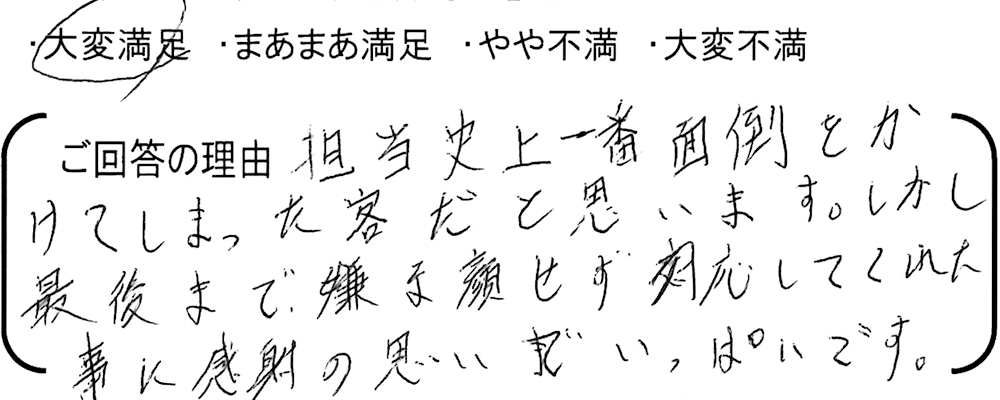 ・大変満足 ・まあまあ満足 ・やや不満 ・大変不満
ご回答の理由 担当史上一番面倒をか
けてしまった客だと思います。しかし
最後まで嫌な顔せず対応してくれた
事に感射の思いでいっぱいです。